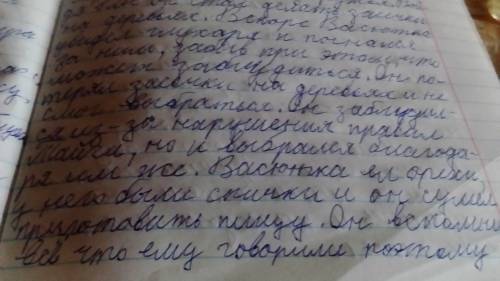 он стал делать засечки
на деревьях. Вскоре Васютка
увидел глухаря и погнался
за ним, забыв при этом что
может заблудиться. Он по-
терял засечки на деревьях и не
смог выбраться. Он заблудил-
ся из-за нарушения правил
тайги, но и выбрался благода-
ря им же. Васютка ел орехи
у него были спички и он сумел
приготовить пищу. Он вспомни
всё что ему говорили поэтому